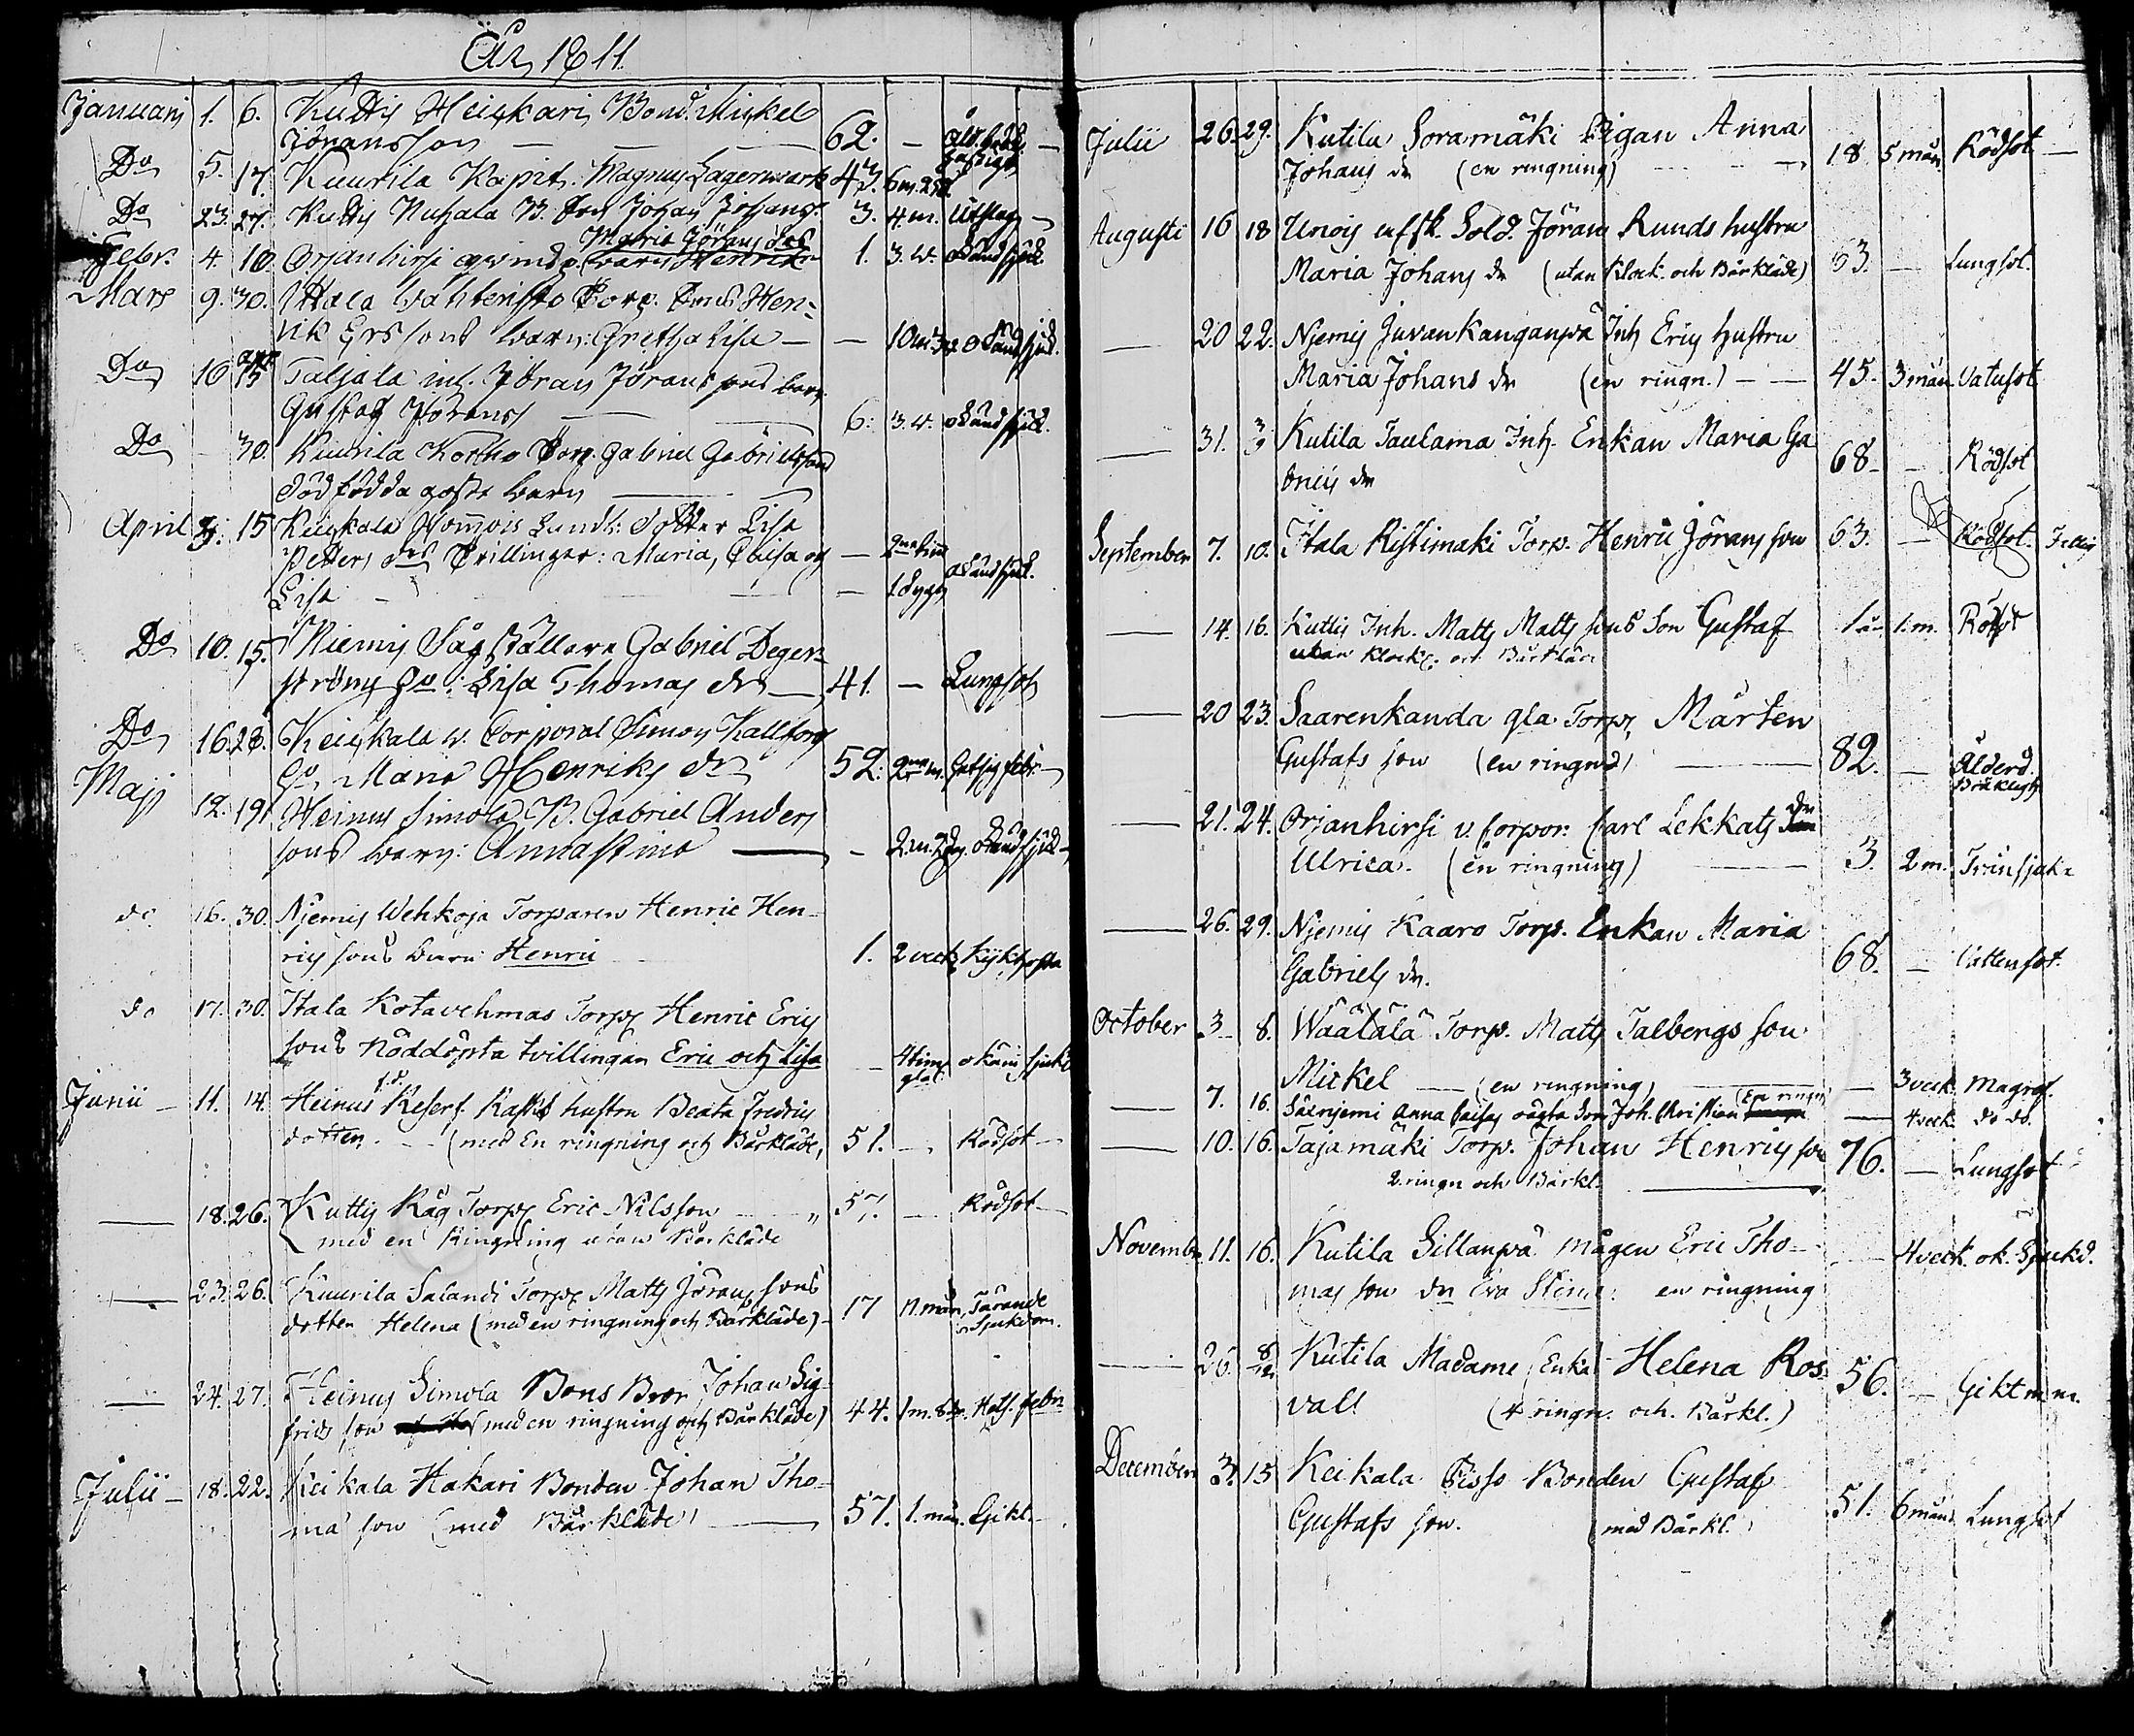 År 1811.
Januarij 1. 6. Kuttis Heikkari Bond. Mickel
Jöransson — 62. —
Do 5. 17. Kuurila Kapit. Magnus Lagermark 43. 6 m.
Do 23. 27. Kuttis Nuhala B. Son Johan Johans. 3. 4 m. Utslag
Maria Görans dr
Febr. 4. 10. Orjanhirsi qvinds 1. 3. v. okänd sjuk.
Mars 9. 30. Uttala Torp. Hen-
rik Ers sons barn: Gretha Lisa — — okänd sjuk.
Do 16 Taljala inh. Jöran Jörans sons barn
Gustaf Jörans 6. 3. v. okänd sjuk.
Do 30. Kuurila Korho Torp. Gabriel Gabrielssons
död födda barn
April 15 Keikkala Lundt. Dotter Lisa
Petters drs Trillingar: Maria, och —
Lisa — 1 dygn okänd sjuk.
Do 10. 15. Niemis Gabriel Deger-
ströms Lisa Thomas dr 41. — Lungsot
Do 16. 28. Keikkala v. Corporal Simon Kallfors
Maria Henriks dr 52.
Maji 12. 19. Heinus Simola B. Gabriel Anders
sons barn: Annastina — — okänd sjuk
do 16. 30. Njemis Wehkoja Torparen Henric Hen-
rics sons barn Henric 1. 2 veck Kikhosta
do 17. 30. Itala Kotavehmas Torp Henric Erics
sons Nöddöpta tvillingar Eric och Lisa — 4 tim okän sjukd
f.d.
Junii — 11. 14. Heinus Reserf. hustru Beata Fredrics
dotter. — (med En ringning och Bårkläde, 51. — Rödsot —
— 18. 26. Kuttis Råg Torp Eric Nilsson " 57. — Rödsot —
med en Ringning utan Bårkläde
— 23. 26. Kuurila Salandi Torp Matts Jörans sons
dotter Helena (med en ringning och Bårkläde) — 17 11. mån, Tärande
Sjukdom.
— 24. 27. Heinus Simola Bond Bror Johan Sig-
frids son (med en ringning och Bårkläde) 44. 1 m. Hets. feber
Julii — 18. 22. Keikala Hakari Bonden Johan Tho-
ma son (med Bårkläde) — 57. 1. mån. Gikt. —
Julii 26. 29. Kutila Soramäki Pigan Anna
Johans dr (en ringning) — 18. 5 mån Rödsot —
Augusti 16 18 Unois afsk. Sold. Jöran Runds hustru
Maria Johans dr (utan Klock. och Bårkläde) 53. — Lungsot.
— 20 22. Njemis Juvankanganpä Inh Erics hustru
Maria Johans dr (en ringn.) — — 45. 3 mån. Vatusot
— 31. 3/9 Kutila Taulama Inh. Enkan Maria Ga
briels dr 68. — Rödsot
September 7. 10. Itala Ristimaki Torp. Henric Jörans son 63. — Rödsot.
— 14. 16. Kuttis Inh. Matts Matts sons Son Gustaf 1 år 1. m. Rötsot
utan klock. och Bårkläde
— 20 23. Saarenkanda gla Torp. Mårten
Gustafs son (en ringnd) — 82. — Ålderd.
Bräklight
— 21. 24. Orjanhirsi v. Corpor: Carl Lekkats dr
Ulrica. (en ringning) — 3. 2 m. Trinsjuka
— 26. 29. Njemis Kaaro Torp. Enkan Maria
Gabriels dr. 68. — Vattensot.
October 3 8. Wäälälä Torp. Matts Talbergs son
Mickel — (en ringning) — 3 veck. Magref.
— 7. 16. Säenjemi Anna oägta Son Joh. Christian (En ringn — 4 veck. do do.
— 10. 16. Tajamäki Torp. Johan Henrics son 76. — Lungsot
2. ringn och Bårkl.
November 11. 16. Kutila Sillanpä mågen Eric Tho-
mas son dr Eva Stina: en ringning — 4 veck. ok. Sjukd.
— 26. 8/12 Kutila Madame (Enka) Helena Ros-
vall (4 ringn. och. Bårkl.) 56. — Gikt m m.
December 3. 15 Keikala Pisso Bonden Gustaf
Gustafs son. (med Bårkl.) 51. 6 mån. Lungsot